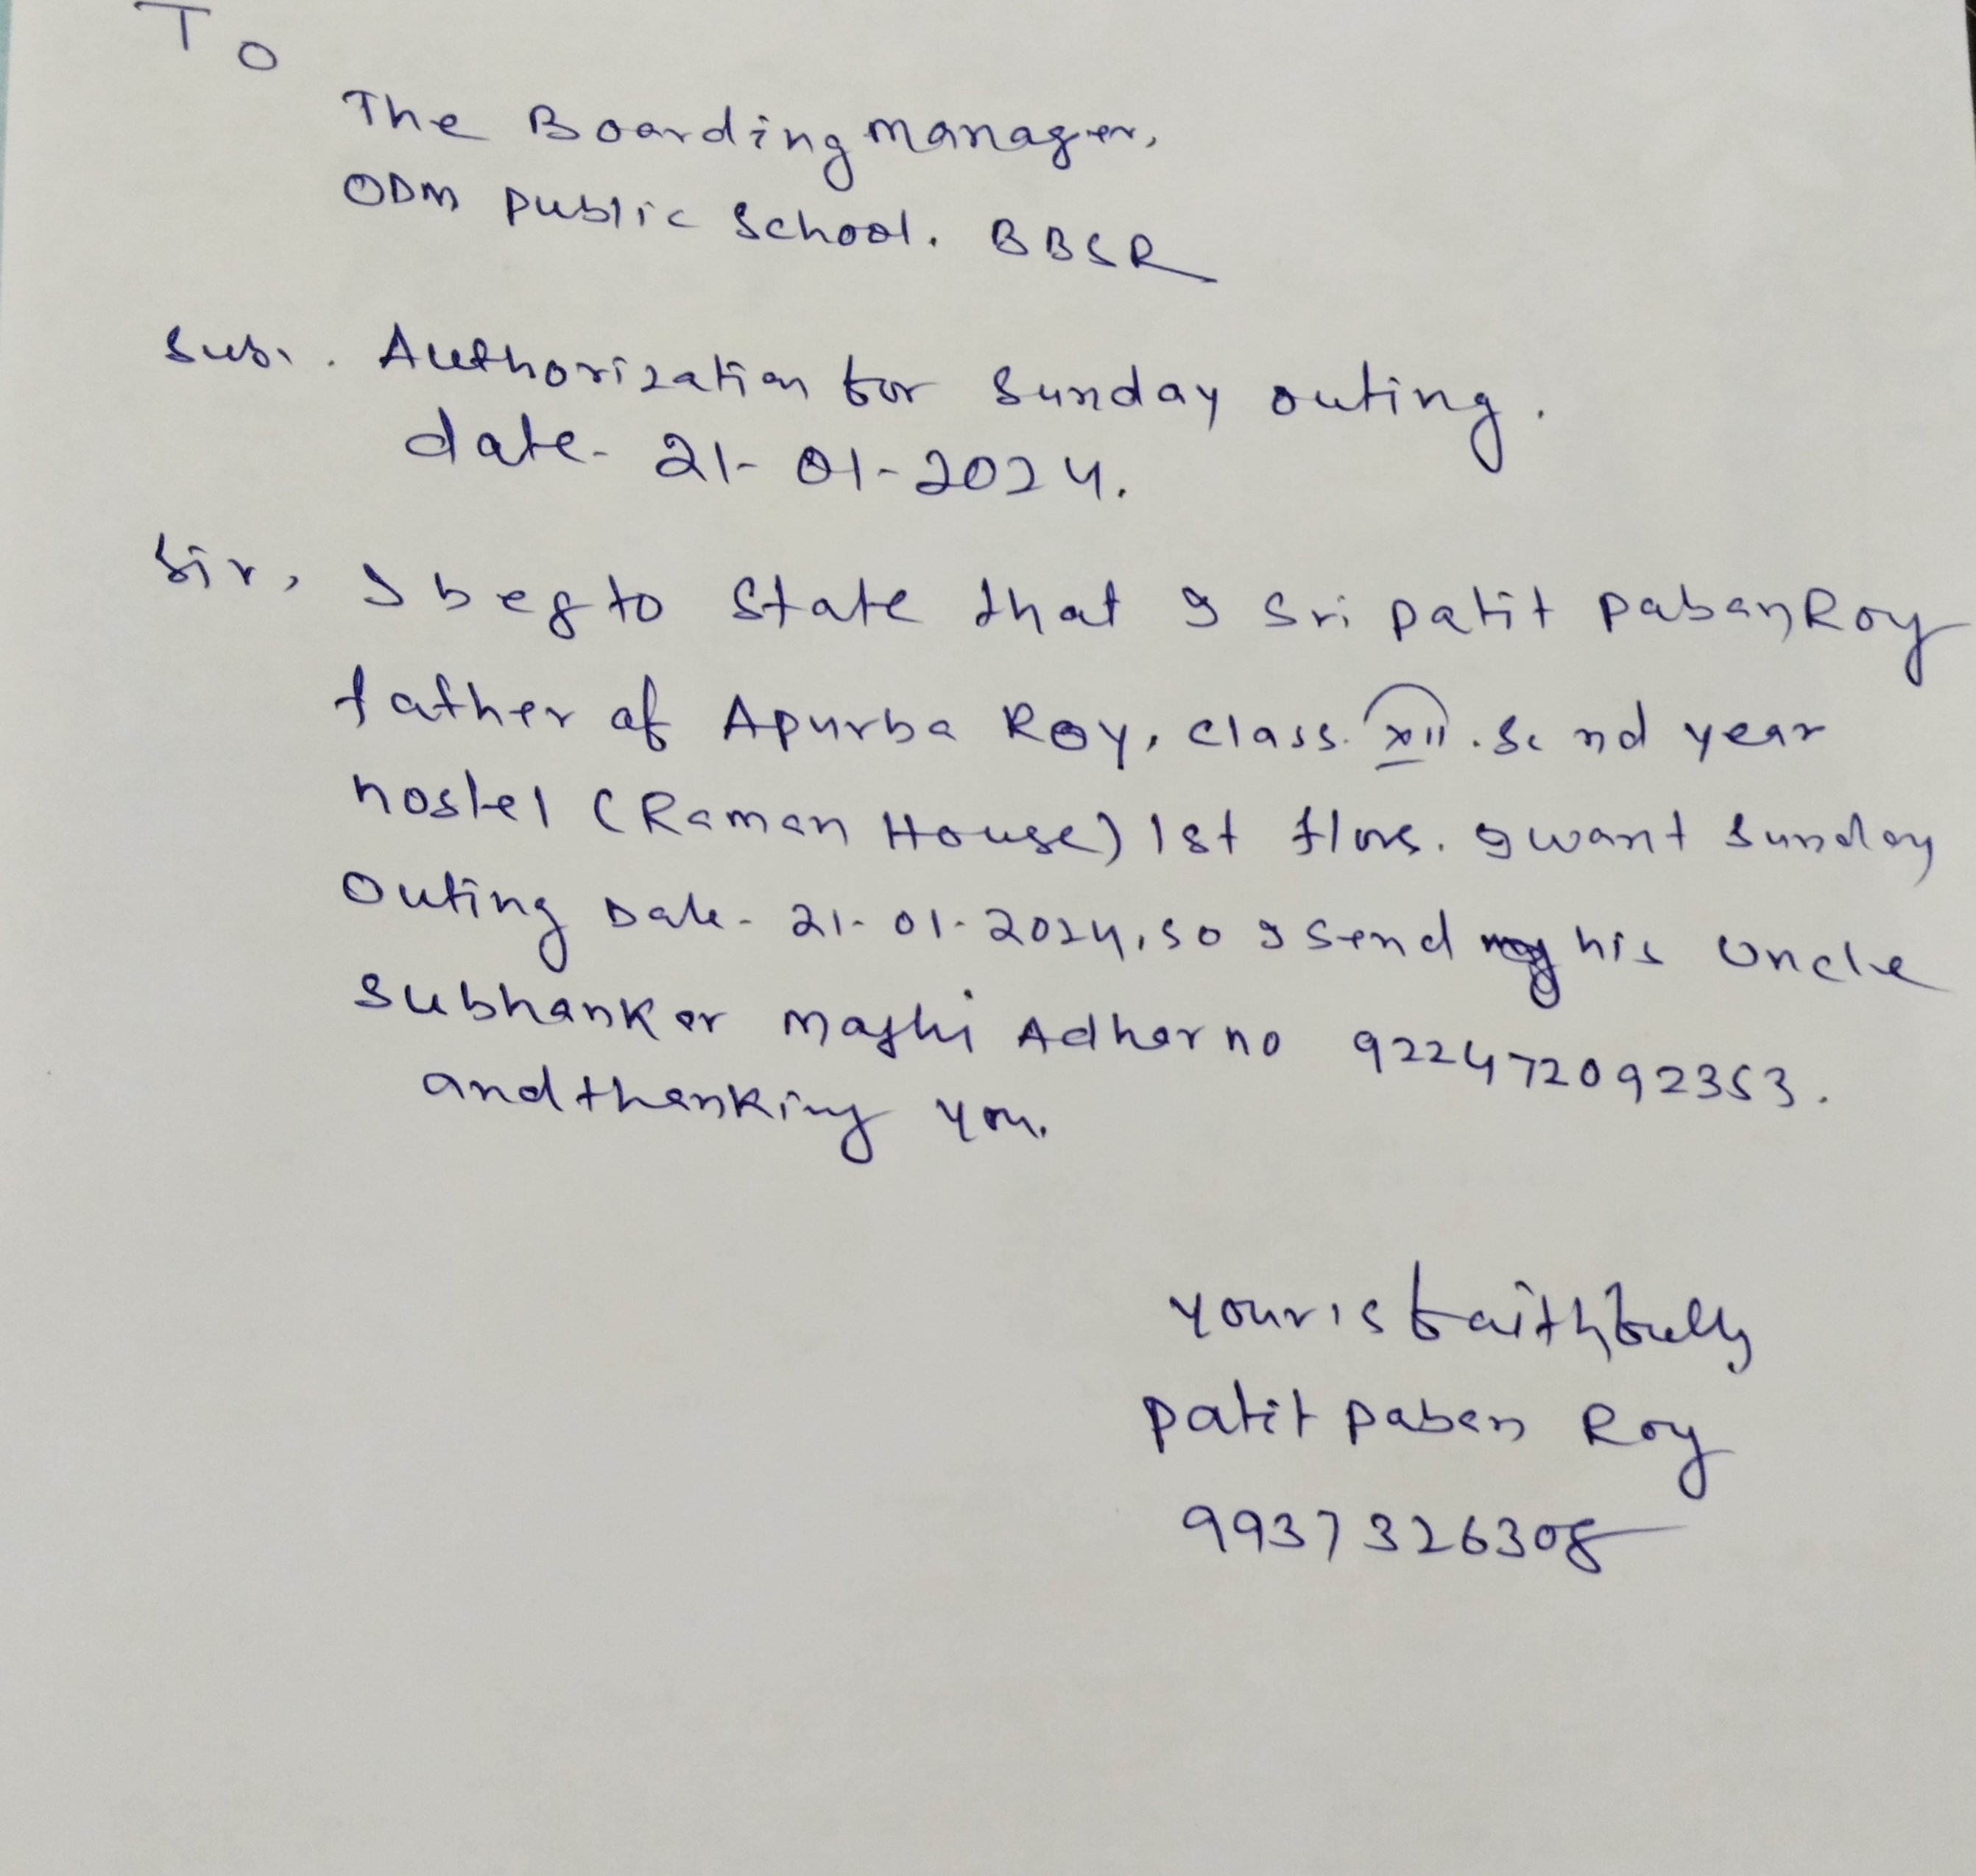 To
The Boarding manager,
ODM public School. BBSR
Sub:. Authorization for Sunday outing.
date- 21-01-2024.
Sir, I beg to State that I Sri patit paban Roy
father of Apurba Roy, class. XII. Sc nd year
hostel (Raman House) 1st I want Sunday
Outing Date- 21-01-2024, so I send his Uncle
Subhanker Majhi Adhar no 922472092353.
and thanking you.
your's faithfully
patit paban Roy
9937326308